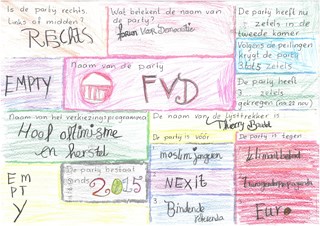 Is de party rechts,
Links of midden?
RECHTS
Wat betekent de naam van
de party?
forum Voor Democratie
De party heeft nu
zetels in de
tweede kamer
Volgens de peilingen
krygt de party
zetels
De party heeft
3 zetels
gekregen (na 22 nov)
EMPTY
Naam van de party
FVD
Naam van het verkiezingsprogramma
Hoof optimisme
en herstel
De naam van de lijsttrekker is
Thierry Baudet
De party is vóór
moslim jongeren
NEXIT
3. Bindende
referenda
De party is tegen
klimaatbeleid
Transgenderpropaganda
Euro
EM
PT
Y
De party bestaat
sinds
2015